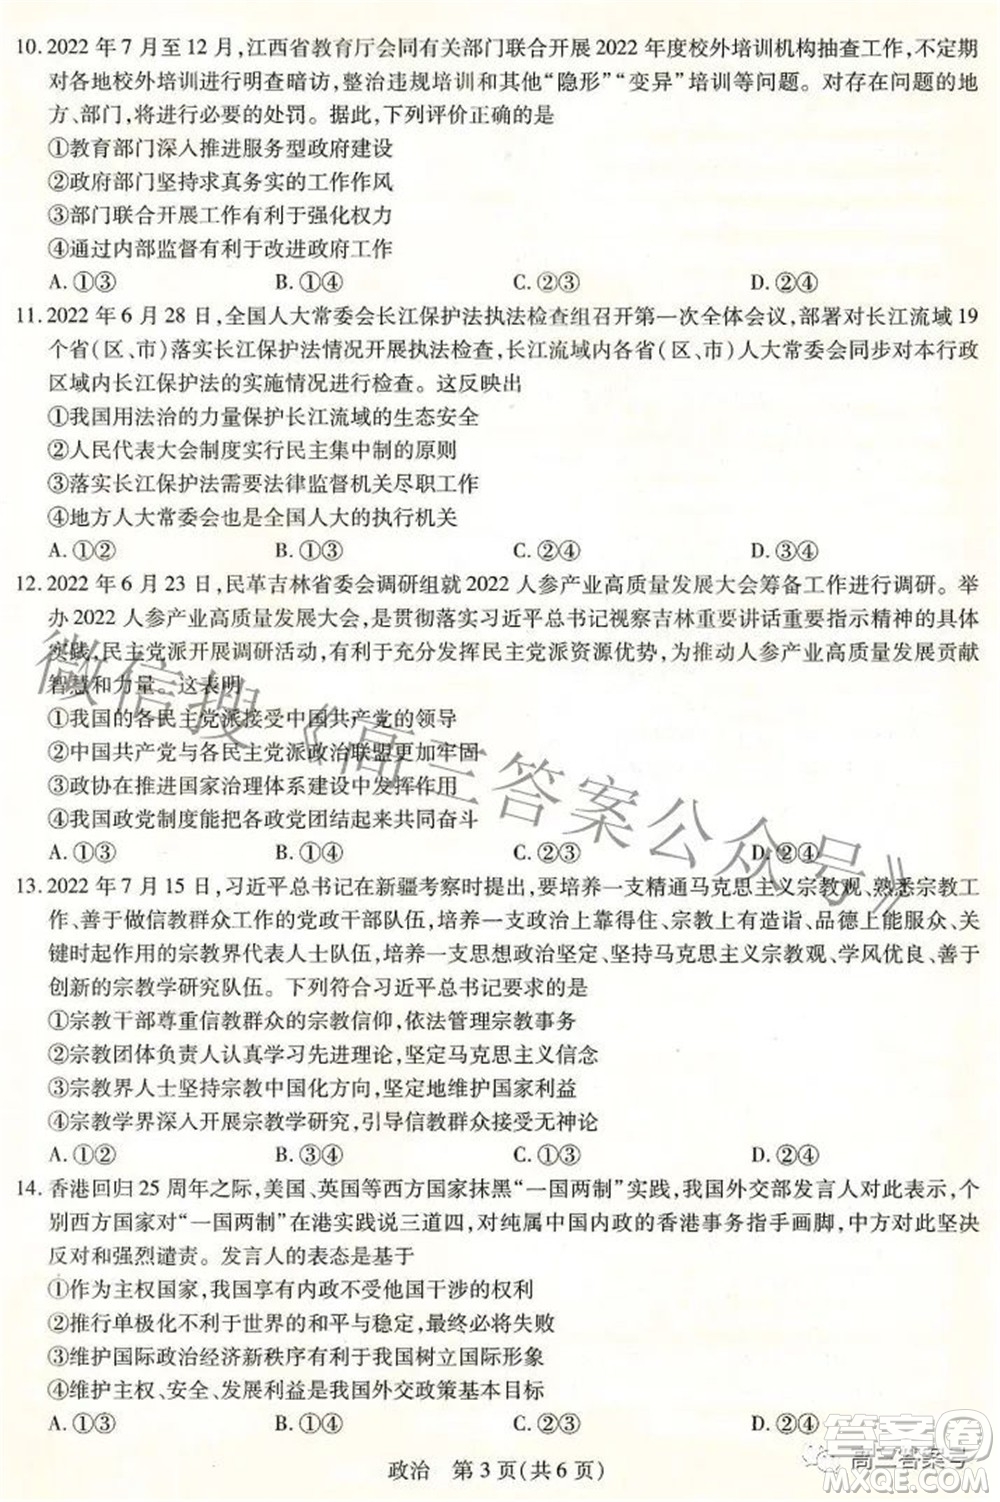 10. 2022 年 7 月至 12 月,江西省教育厅会同有关部门联合开展 2022 年度校外培训机构抽查工作,不定期
对各地校外培训进行明查暗访,整治违规培训和其他“隐形”“变异”培训等问题。对存在问题的地
方、部门,将进行必要的处罚。据此,下列评价正确的是
①教育部门深入推进服务型政府建设
②政府部门坚持求真务实的工作作风
③部门联合开展工作有利于强化权力
④通过内部监督有利于改进政府工作
A. ①③ B. ①④ C. ②③ D. ②④
11. 2022 年 6 月 28 日,全国人大常委会长江保护法执法检查组召开第一次全体会议,部署对长江流域 19
个省(区、市)落实长江保护法情况开展执法检查,长江流域内各省(区、市)人大常委会同步对本行政
区域内长江保护法的实施情况进行检查。这反映出
①我国用法治的力量保护长江流域的生态安全
②人民代表大会制度实行民主集中制的原则
③落实长江保护法需要法律监督机关尽职工作
④地方人大常委会也是全国人大的执行机关
A. ①② B. ①③ C. ②④ D. ③④
12. 2022 年 6 月 23 日,民革吉林省委会调研组就 2022 人参产业高质量发展大会筹备工作进行调研。举
办 2022 人参产业高质量发展大会,是贯彻落实习近平总书记视察吉林重要讲话重要指示精神的具体
实践,民主党派开展调研活动,有利于充分发挥民主党派资源优势,为推动人参产业高质量发展贡献
智慧和力量。这表明
①我国的各民主党派接受中国共产党的领导
②中国共产党与各民主党派政治联盟更加牢固
③政协在推进国家治理体系建设中发挥作用
④我国政党制度能把各政党团结起来共同奋斗
A. ①③ B. ①④ C. ②③ D. ②④
13. 2022 年 7 月 15 日,习近平总书记在新疆考察时提出,要培养一支精通马克思主义宗教观、熟悉宗教工
作、善于做信教群众工作的党政干部队伍,培养一支政治上靠得住、宗教上有造诣、品德上能服众、关
键时起作用的宗教界代表人士队伍,培养一支思想政治坚定、坚持马克思主义宗教观、学风优良、善于
创新的宗教学研究队伍。下列符合习近平总书记要求的是
①宗教干部尊重信教群众的宗教信仰,依法管理宗教事务
②宗教团体负责人认真学习先进理论,坚定马克思主义信念
③宗教界人士坚持宗教中国化方向,坚定地维护国家利益
④宗教学界深入开展宗教学研究,引导信教群众接受无神论
A. ①② B. ①③ C. ②③ D. ②④
14. 香港回归 25 周年之际,美国、英国等西方国家抹黑“一国两制”实践,我国外交部发言人对此表示,个
别西方国家对“一国两制”在港实践说三道四,对纯属中国内政的香港事务指手画脚,中方对此坚决
反对和强烈谴责。发言人的表态是基于
①作为主权国家,我国享有内政不受他国干涉的权利
②推行单极化不利于世界的和平与稳定,最终必将失败
③维护国际政治经济新秩序有利于我国树立国际形象
④维护主权、安全、发展利益是我国外交政策基本目标
A. ①③ B. ①④ C. ②③ D. ②④
政治 第 3 页(共 6 页)
微信搜《高三答案公众号》
高三答案号
答案圈
MXQE.COM